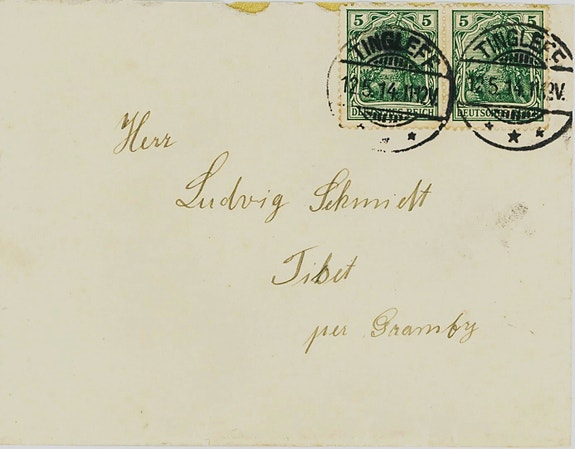 5 5 5 5
TINGLEFF TINGLEFF
12.5.14.11-12V. 12.5.14.11-12V.
DEUTSCHES REICH DEUTSCHES REICH
Herr
Ludvig Schmidt
Tibet
per Gramby